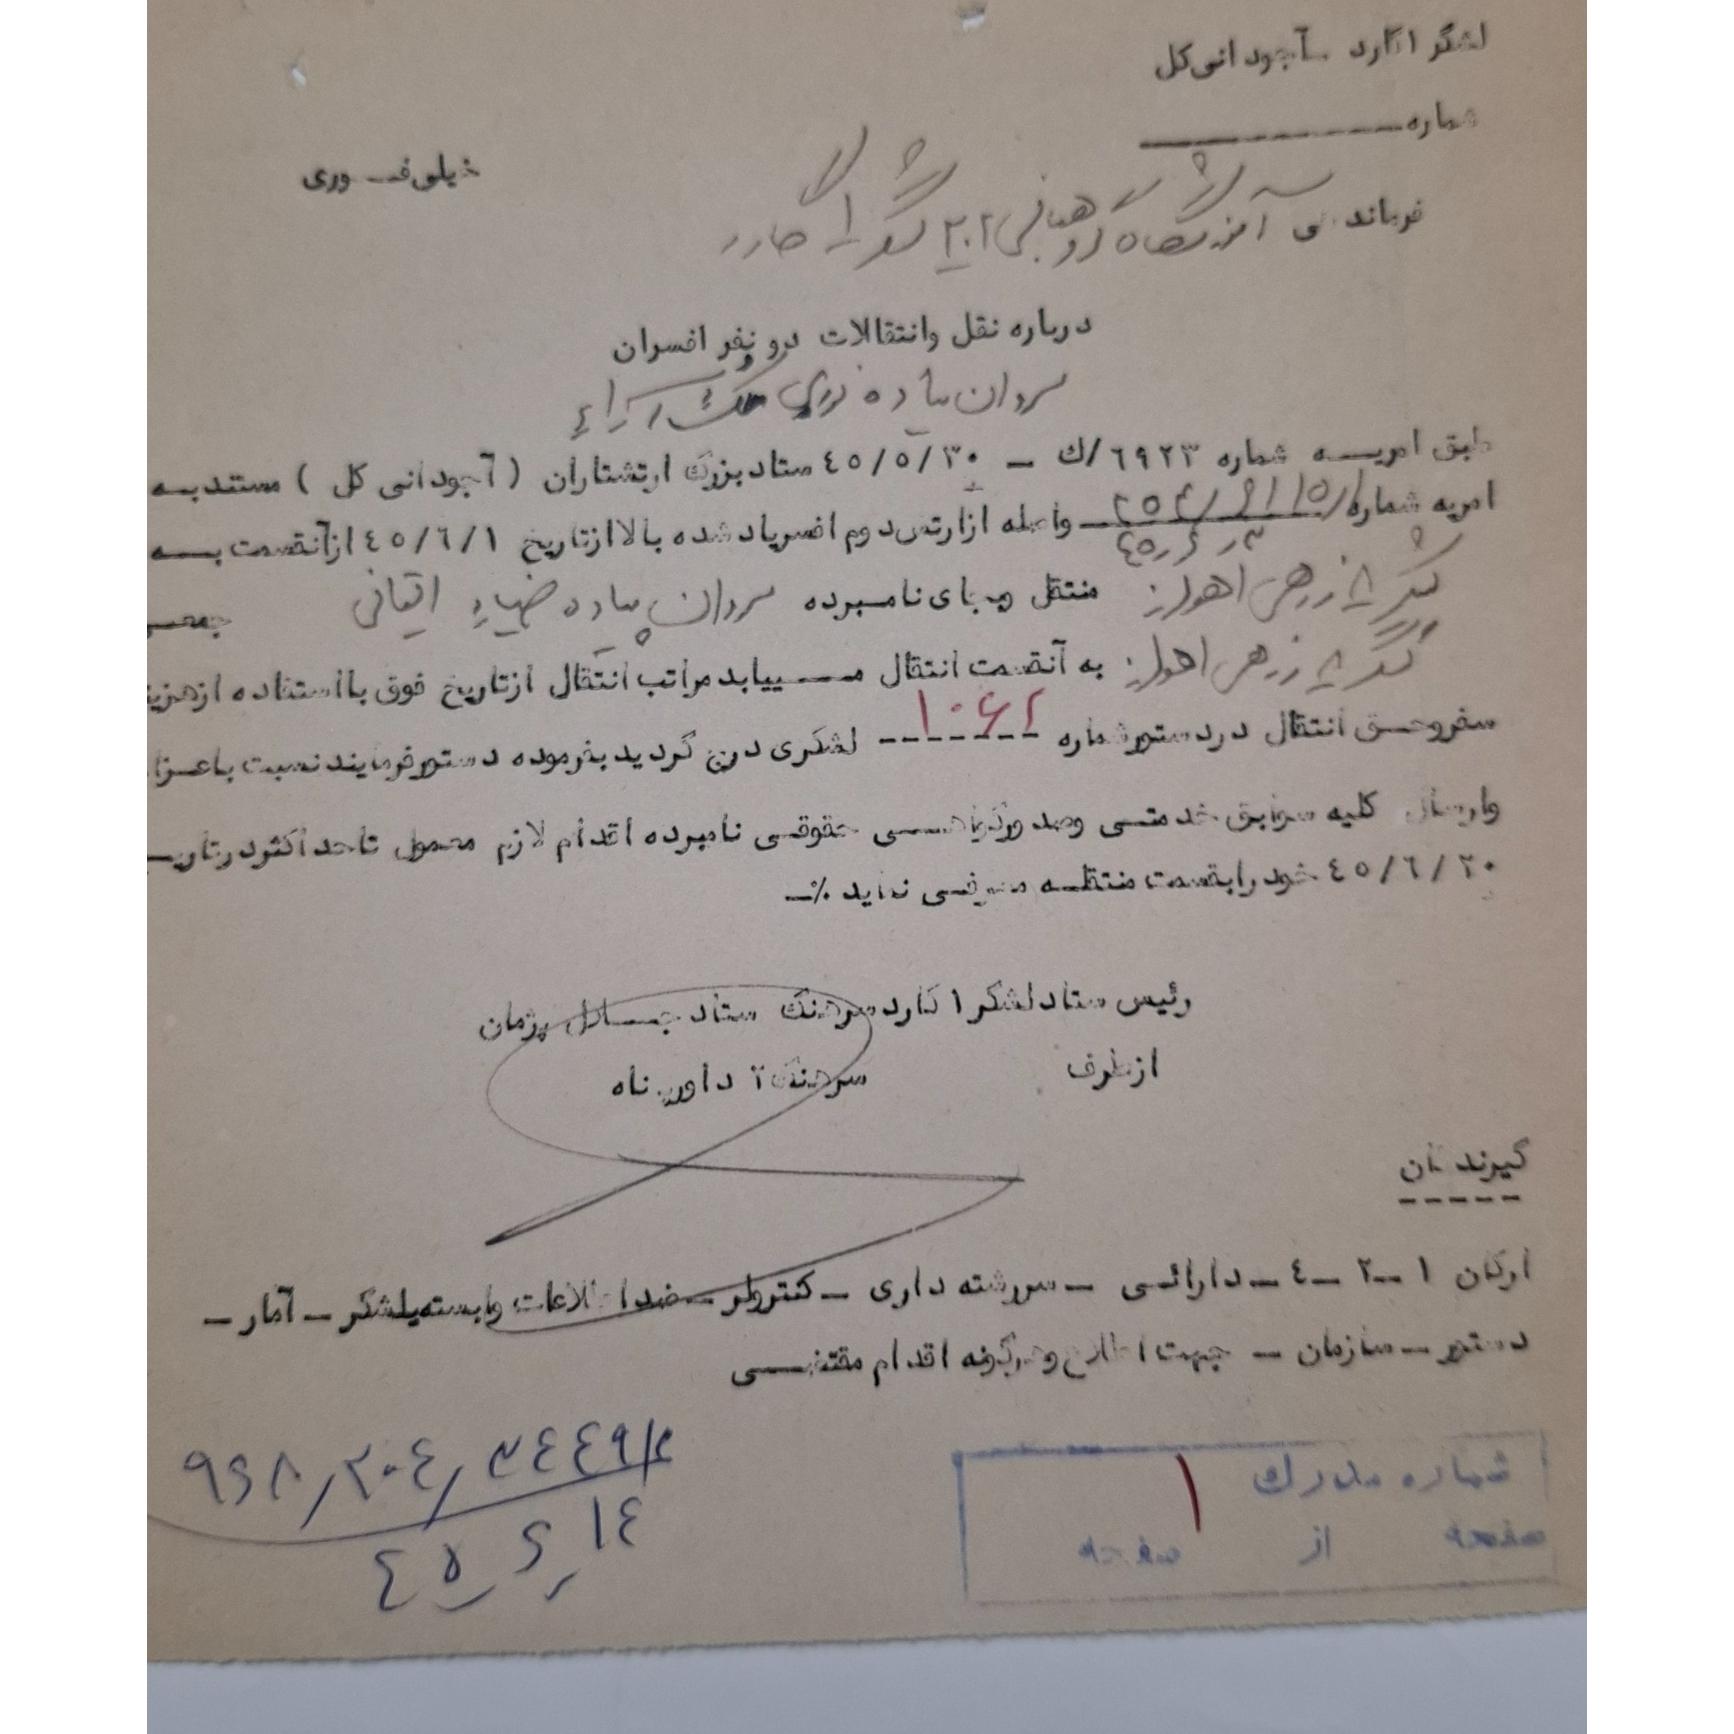 لشگر ۱ گارد ـ آجودانی کل
شماره
خیلی فـــوری
فرماندهی آموزشگاه گروهبانی لشگر ۱ گارد
درباره نقل وانتقالات درو نفر افسران
سروان پیاده
طبق امریـــه شماره ٦٩٢٣/ك ـ ٤٥/٥/٣٠ ستاد بزرگ ارتشتاران ( آجودانی کل ) مستند بـــه
امریه شماره واصله از ارتش دوم افسر یاد شده بالا از تاریخ ٤٥/٦/١ از آنقسمت بـــه
لشگر ۸ زرهی اهواز منتقل و بجای نامبرده سروان پیاده ضیاء
لشگر ۸ زرهی اهواز به آنقسمت انتقال مـــییابد مراتب انتقال از تاریخ فوق با استفاده از هزینه
سفر وحـــق انتقال در دستور شماره ۱۰۶۲ لشکری درج گردید بفرموده دستور فرمایند نسبت باعـــزا
وارسال کلیه سوابق خدمتـــی وصدور گواهـــی حقوقـــی نامبرده اقدام لازم معمول تا حداکثر در تاریـــ
٤٥/٦/٢٠ خود را بقسمت منتقلـــه معرفـــی نماید ٪ـ
رئیس ستاد لشکر ۱ گارد سرهنگ ستاد جـــلال پژمان
از طرف سرهنگ ۲ داور پناه
گیرندگان
ارکان ١ ـ٢ ـ٤ ـ دارائـــی ـ سررشته داری ـ کنترولر ـ ضد اطلاعات وابسته بلشگر ـ آمار ـ
دستور ـ سازمان ـ جهت اطلاع و هرگونه اقدام مقتضـــی
۱۴ ر ۶ ر ۴۵
شماره مدرک ۱
صفحه از صفحه